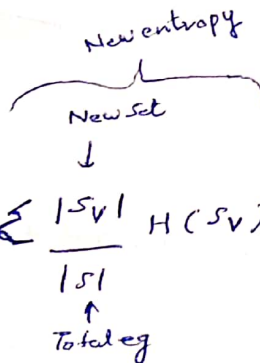 New entropy
New set
Σ |Sv| / |S| H(Sv)
Total eg